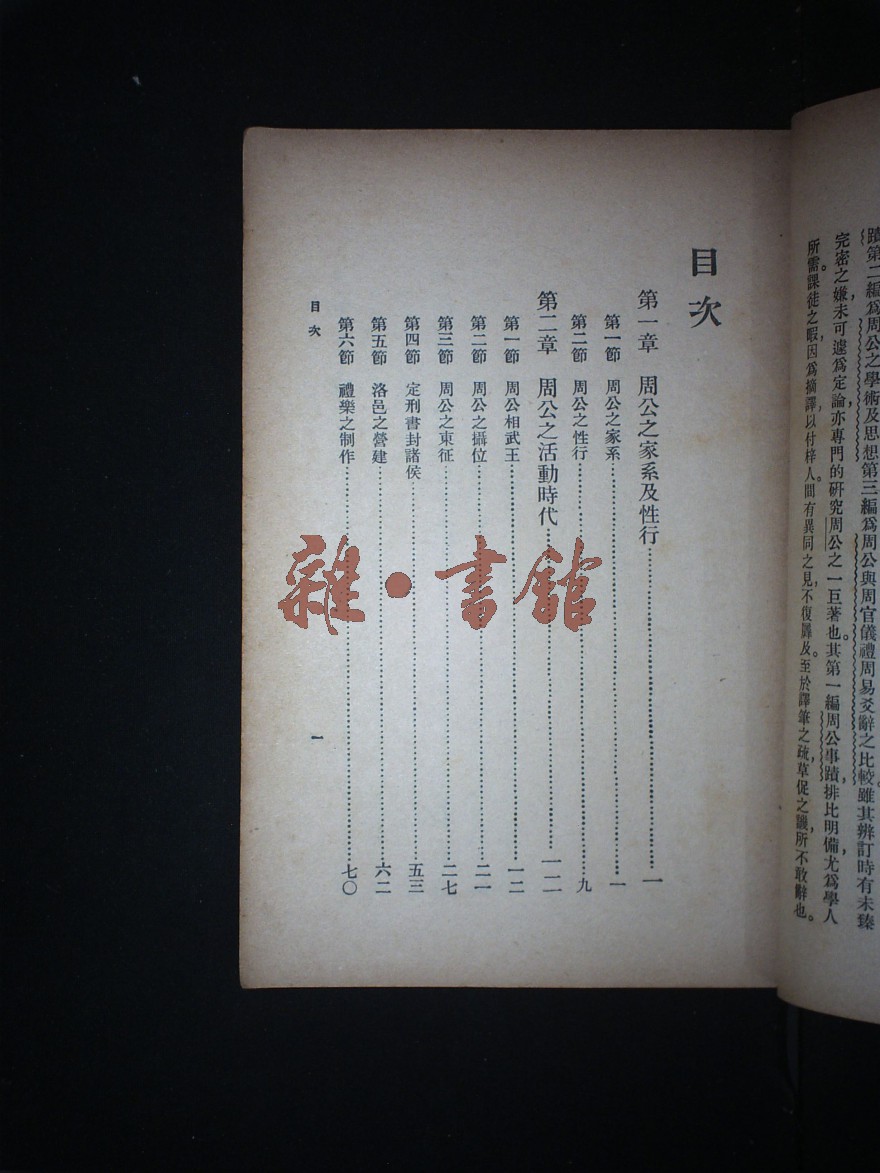 蹟第二編爲周公之學術及思想第三編爲周公與周官儀禮周易爻辭之比較雖其辨訂時有未臻
完密之嫌，未可遽爲定論，亦專門的研究周公之一巨著也。其第一編周公事蹟，排比明備，尤爲學人
所需。課徒之暇，因爲摘譯，以付梓人。間有異同之見，不復羼及。至於譯筆之疏，草促之譏，所不敢辭也。
目次
第一章　周公之家系及性行……一
第一節　周公之家系……一
第二節　周公之性行……九
第二章　周公之活動時代……一二
第一節　周公相武王……一二
第二節　周公之攝位……二一
第三節　周公之東征……二七
第四節　定刑書封諸侯……五三
第五節　洛邑之營建……六二
第六節　禮樂之制作……七〇
目次
一
雜·書館